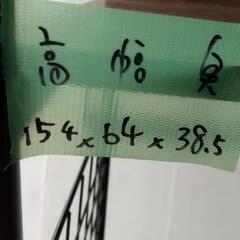 高 幅 奥
154×64×38.5